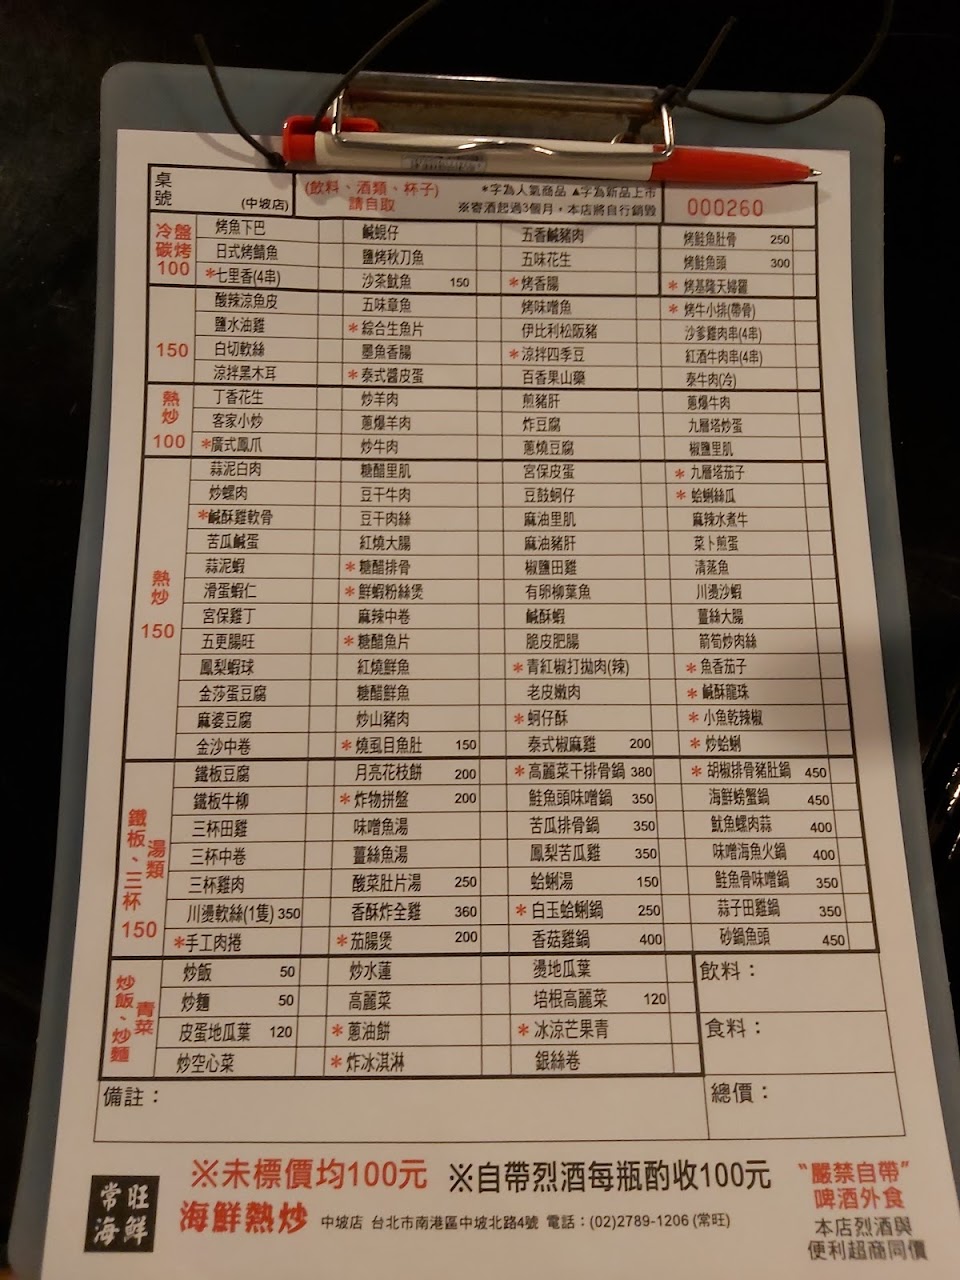 桌號 (中坡店) (飲料、酒類、杯子) 請自取 *字為人氣商品 ▲字為新品上市 ※寄酒起過3個月,本店將自行銷毀 000260
冷盤 碳烤 100
烤魚下巴 鹹蜆仔 五香鹹豬肉 烤鮭魚肚骨 250
日式烤鯖魚 鹽烤秋刀魚 五味花生 烤鮭魚頭 300
*七里香(4串) 沙茶魷魚 150 *烤香腸 *烤基隆天婦羅
150
酸辣涼魚皮 五味章魚 烤味噌魚 *烤牛小排(帶骨)
鹽水油雞 *綜合生魚片 伊比利松阪豬 沙爹雞肉串(4串)
白切軟絲 墨魚香腸 *涼拌四季豆 紅酒牛肉串(4串)
涼拌黑木耳 *泰式醬皮蛋 百香果山藥 泰牛肉(冷)
熱炒 100
丁香花生 炒羊肉 煎豬肝 蔥爆牛肉
客家小炒 蔥爆羊肉 炸豆腐 九層塔炒蛋
*廣式鳳爪 炒牛肉 蔥燒豆腐 椒鹽里肌
熱炒 150
蒜泥白肉 糖醋里肌 宮保皮蛋 *九層塔茄子
炒螺肉 豆干牛肉 豆鼓蚵仔 *蛤蜊絲瓜
*鹹酥雞軟骨 豆干肉絲 麻油里肌 麻辣水煮牛
苦瓜鹹蛋 紅燒大腸 麻油豬肝 菜卜煎蛋
蒜泥蝦 *糖醋排骨 椒鹽田雞 清蒸魚
滑蛋蝦仁 *鮮蝦粉絲煲 有卵柳葉魚 川燙沙蝦
宮保雞丁 麻辣中卷 鹹酥蝦 薑絲大腸
五更腸旺 *糖醋魚片 脆皮肥腸 箭筍炒肉絲
鳳梨蝦球 紅燒鮮魚 *青紅椒打拋肉(辣) *魚香茄子
金莎蛋豆腐 糖醋鮮魚 老皮嫩肉 *鹹酥龍珠
麻婆豆腐 炒山豬肉 *蚵仔酥 *小魚乾辣椒
金沙中卷 *燒虱目魚肚 150 泰式椒麻雞 200 *炒蛤蜊
鐵板、三杯 湯類 150
鐵板豆腐 月亮花枝餅 200 *高麗菜干排骨鍋 380 *胡椒排骨豬肚鍋 450
鐵板牛柳 *炸物拼盤 200 鮭魚頭味噌鍋 350 海鮮螃蟹鍋 450
三杯田雞 味噌魚湯 苦瓜排骨鍋 350 魷魚螺肉蒜 400
三杯中卷 薑絲魚湯 鳳梨苦瓜雞 350 味噌海魚火鍋 400
三杯雞肉 酸菜肚片湯 250 蛤蜊湯 150 鮭魚骨味噌鍋 350
川燙軟絲(1隻) 350 香酥炸全雞 360 *白玉蛤蜊鍋 250 蒜子田雞鍋 350
*手工肉捲 *茄腸煲 200 香菇雞鍋 400 砂鍋魚頭 450
炒飯、炒麵 青菜
炒飯 50 炒水蓮 燙地瓜葉 飲料：
炒麵 50 高麗菜 培根高麗菜 120
皮蛋地瓜葉 120 *蔥油餅 *冰涼芒果青 食料：
炒空心菜 *炸冰淇淋 銀絲卷
備註： 總價：
※未標價均100元 ※自帶烈酒每瓶酌收100元 "嚴禁自帶"啤酒外食
常旺海鮮 海鮮熱炒 中坡店 台北市南港區中坡北路4號 電話：(02)2789-1206 (常旺)
本店烈酒與
便利超商同價